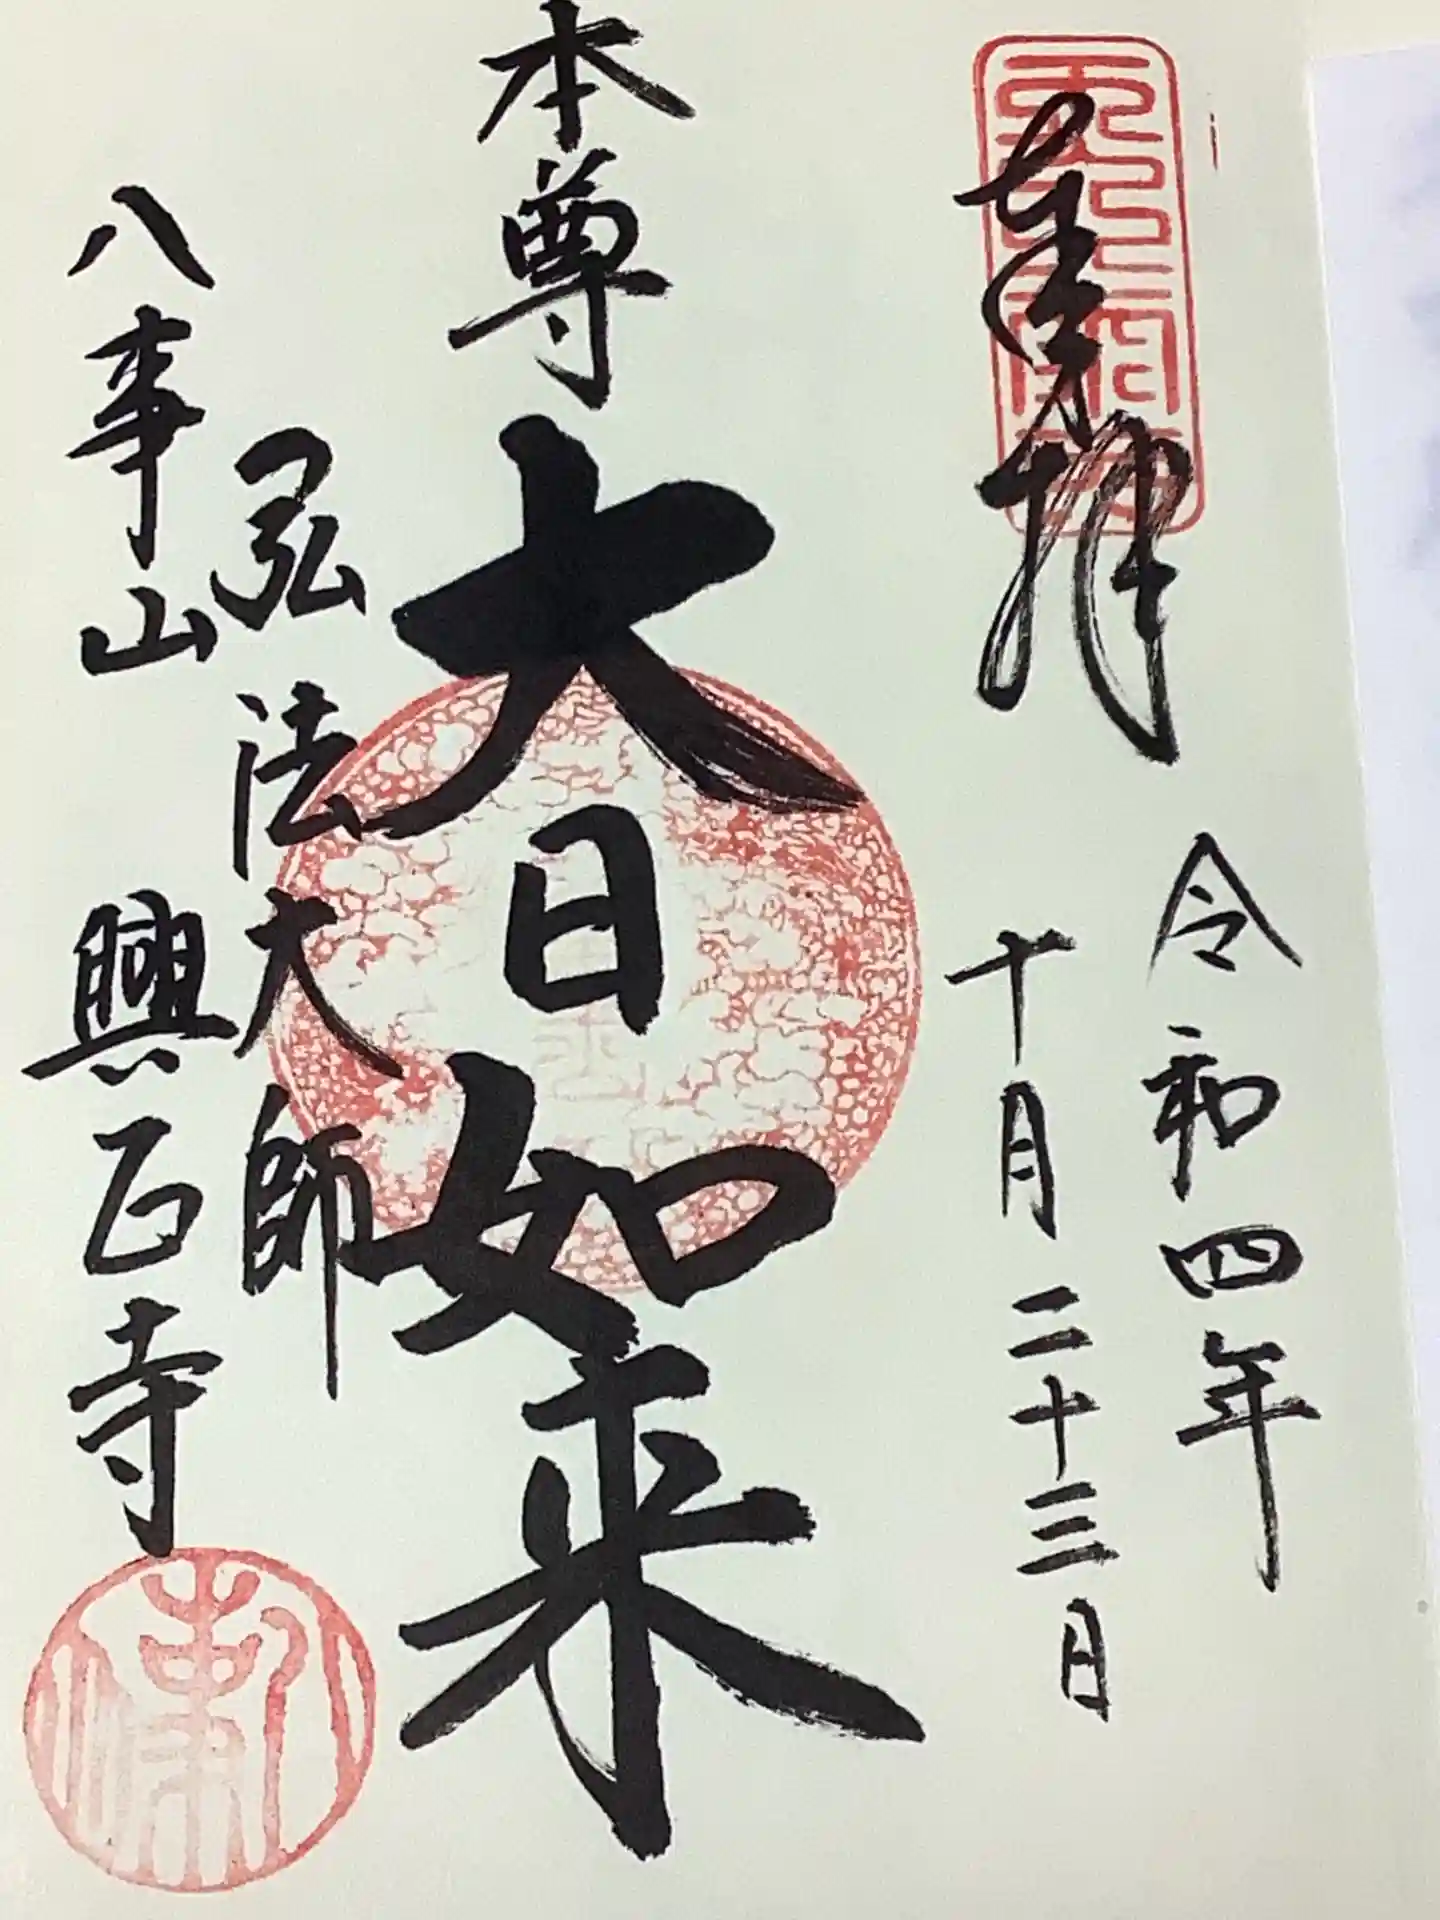 奉拝
令和四年
十月二十三日
本尊
大日如来
弘法大師
八事山
興正寺